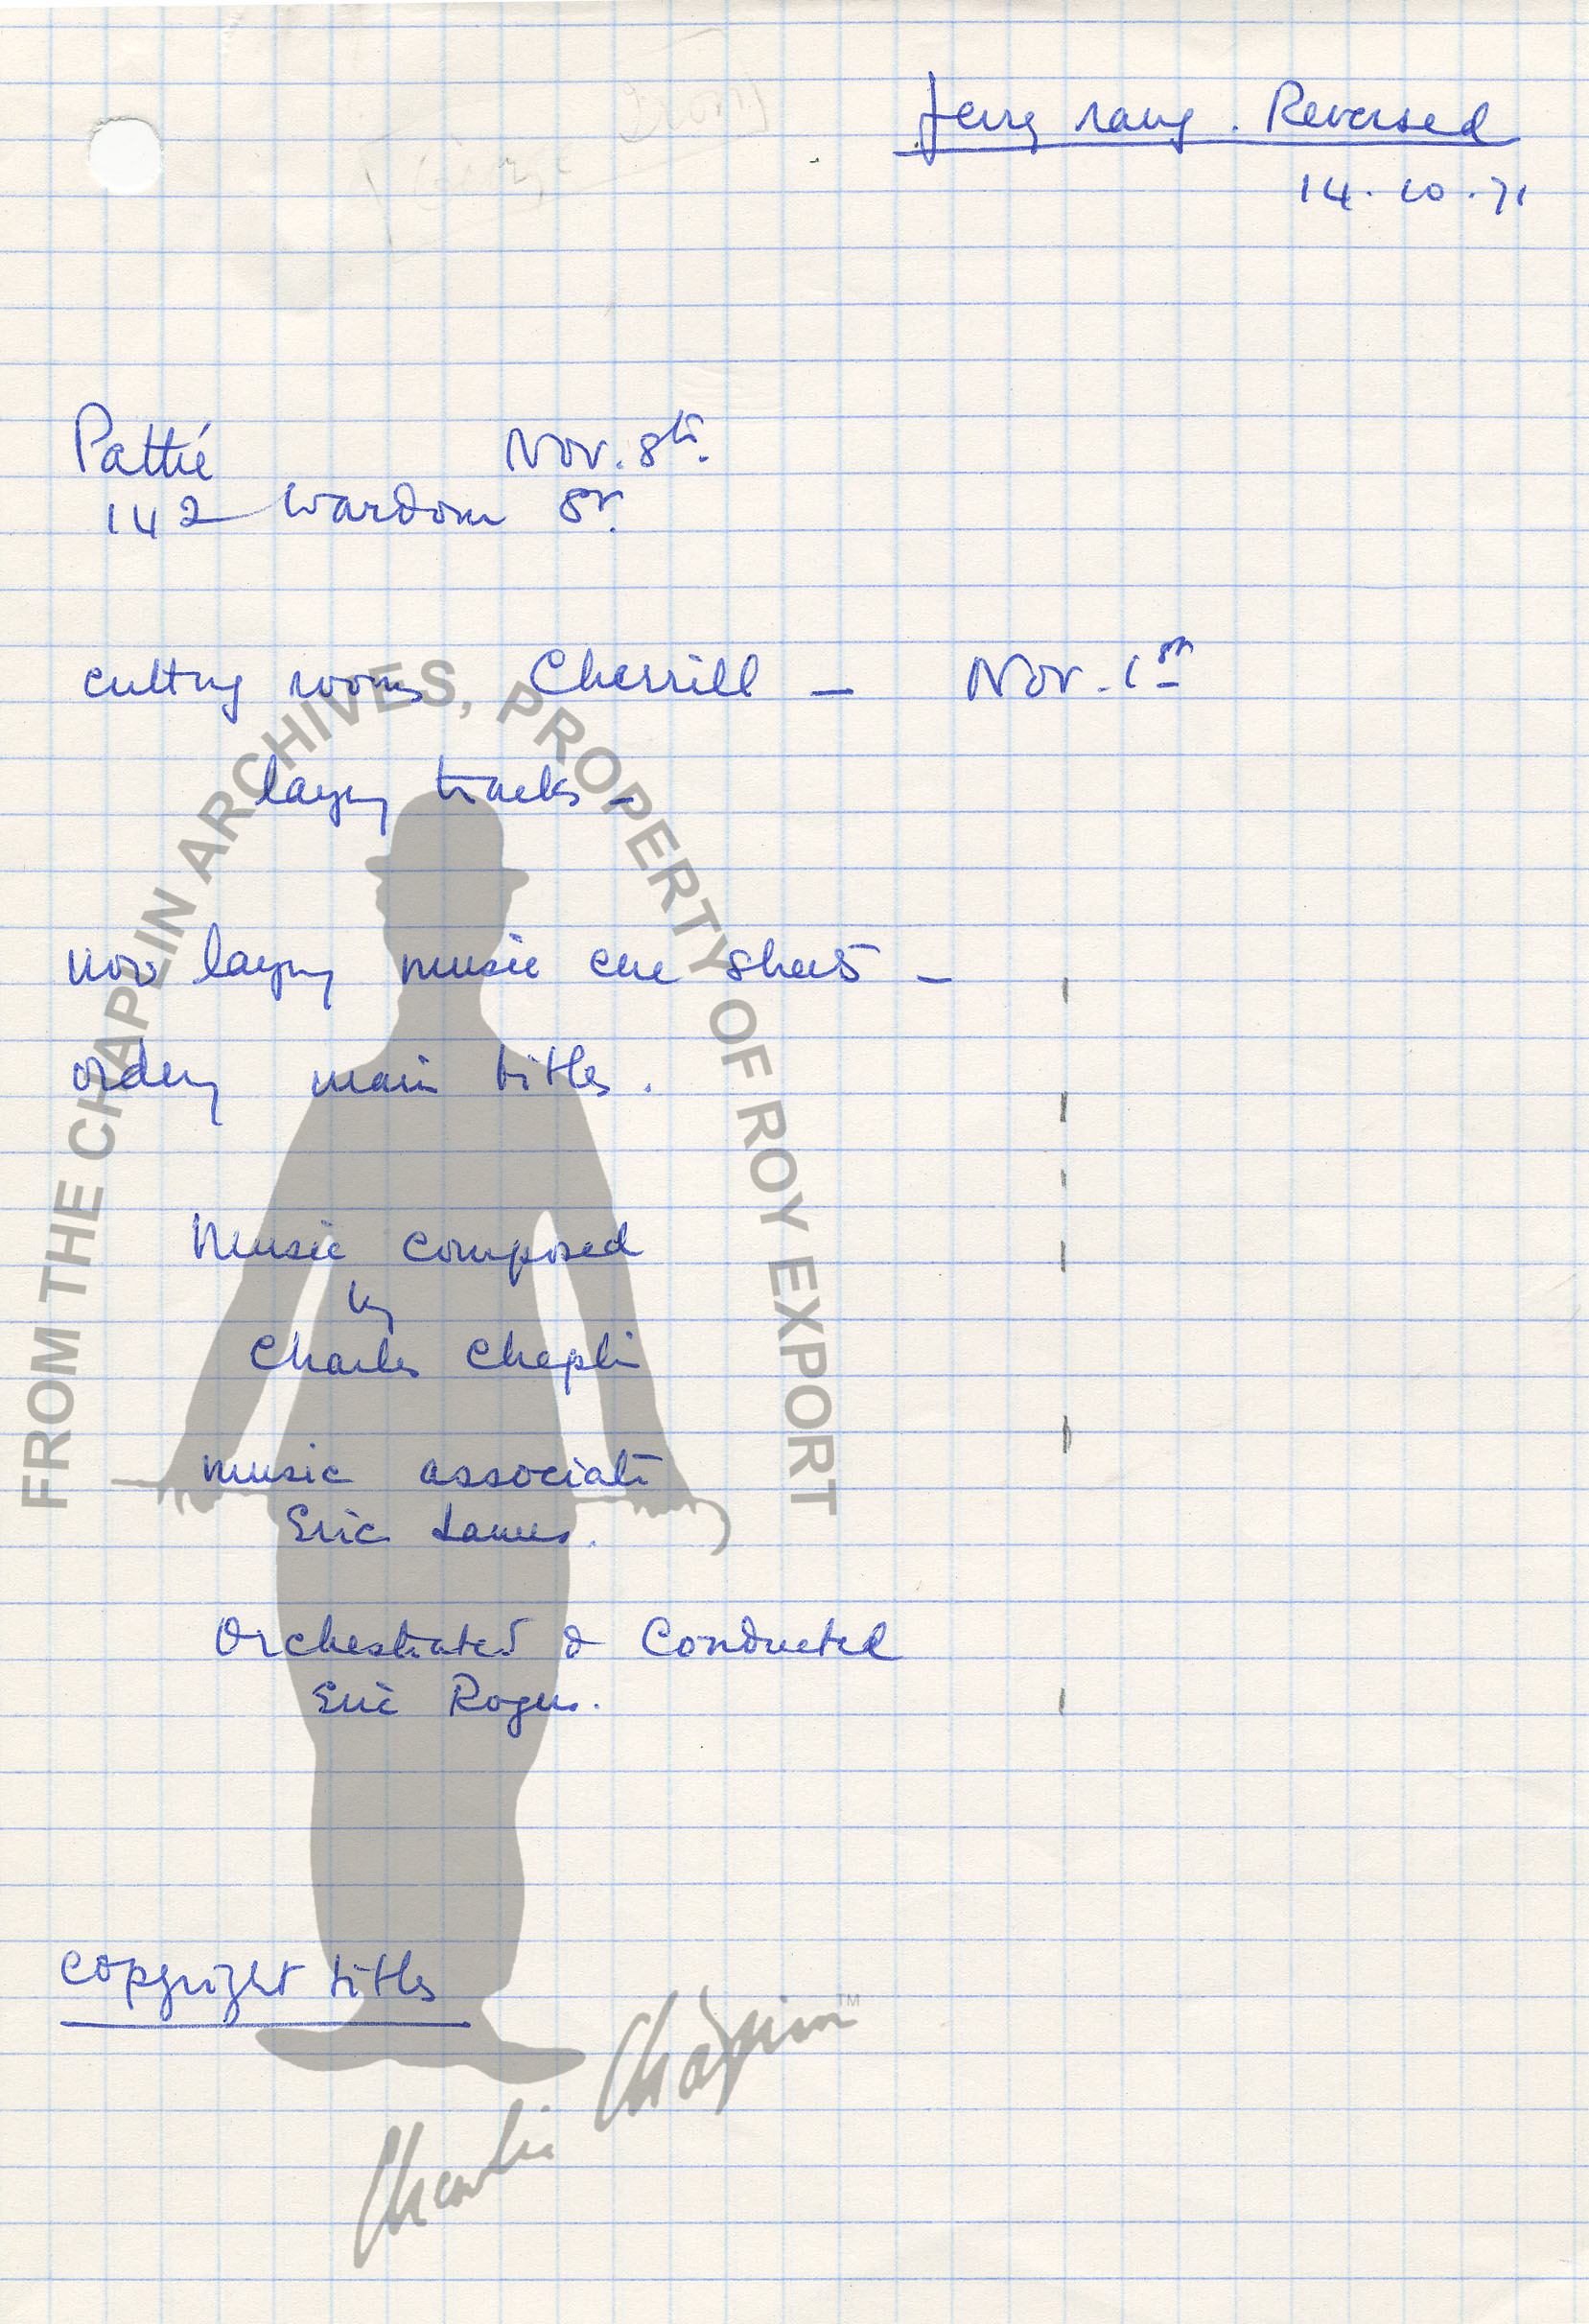 Jerry rang. Reversed
14.10.71
Pathé Nov. 8th.
142 Wardom St.
cutting rooms, Cherrill – Nov. 1st
laying tracks –
now laying music cue sheets –
ordering main titles.
Music composed
by
Charles Chaplin
music associate
Eric James.
Orchestrated & Conducted
Eric Rogers.
copyright titles
FROM THE CHAPLIN ARCHIVES, PROPERTY OF ROY EXPORT
Charlie Chaplin™